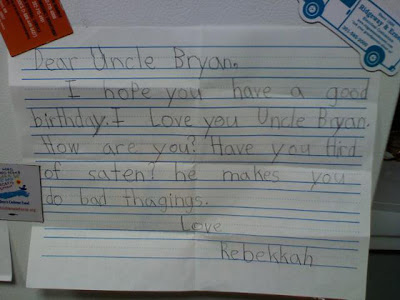 Dear Uncle Bryan.
I hope you have a good
birthday. I Love you Uncle Bryan.
How are you? Have you Hird
of saten? he makes you
do bad thagings.
Love
Rebekkah
Ridgway & East